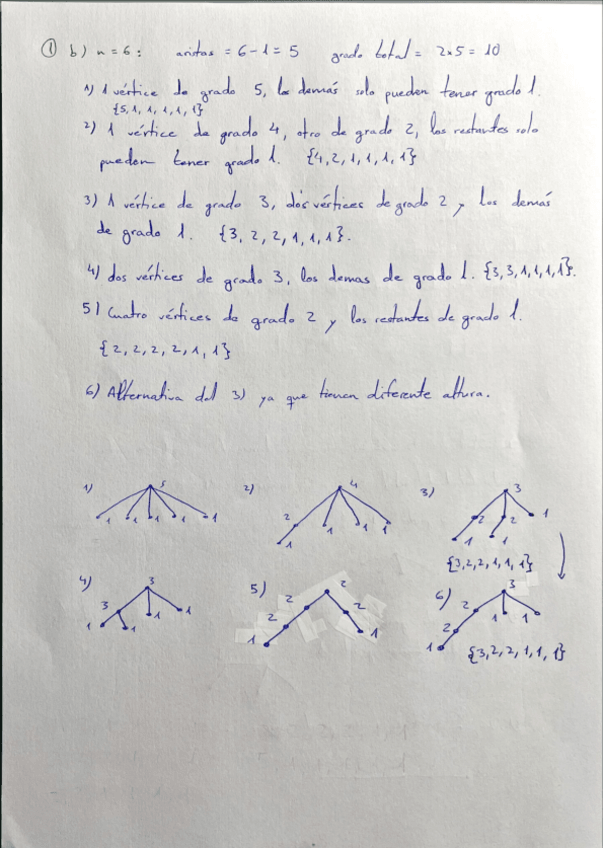 ① b) n = 6 : aristas = 6 - 1 = 5 grado total = 2x5 = 10
1) 1 vértice de grado 5, los demás solo pueden tener grado 1.
{5, 1, 1, 1, 1, 1}
2) 1 vértice de grado 4, otro de grado 2, los restantes solo
pueden tener grado 1. {4, 2, 1, 1, 1, 1}
3) 1 vértice de grado 3, dos vértices de grado 2 y los demás
de grado 1. {3, 2, 2, 1, 1, 1}.
4) dos vértices de grado 3, los demas de grado 1. {3, 3, 1, 1, 1, 1}.
5) Cuatro vértices de grado 2 y los restantes de grado 1.
{2, 2, 2, 2, 1, 1}
6) Alternativa del 3) ya que tienen diferente altura.
1) 5 2) 4 3) 3
1 1 1 1 1 2 1 1 1 1 2 2 1 1 1
{3, 2, 2, 1, 1, 1}
4) 3 5) 2 6) 3
3 1 1 2 2 2 1 1
1 1 2 2
1 1 1 {3, 2, 2, 1, 1, 1}